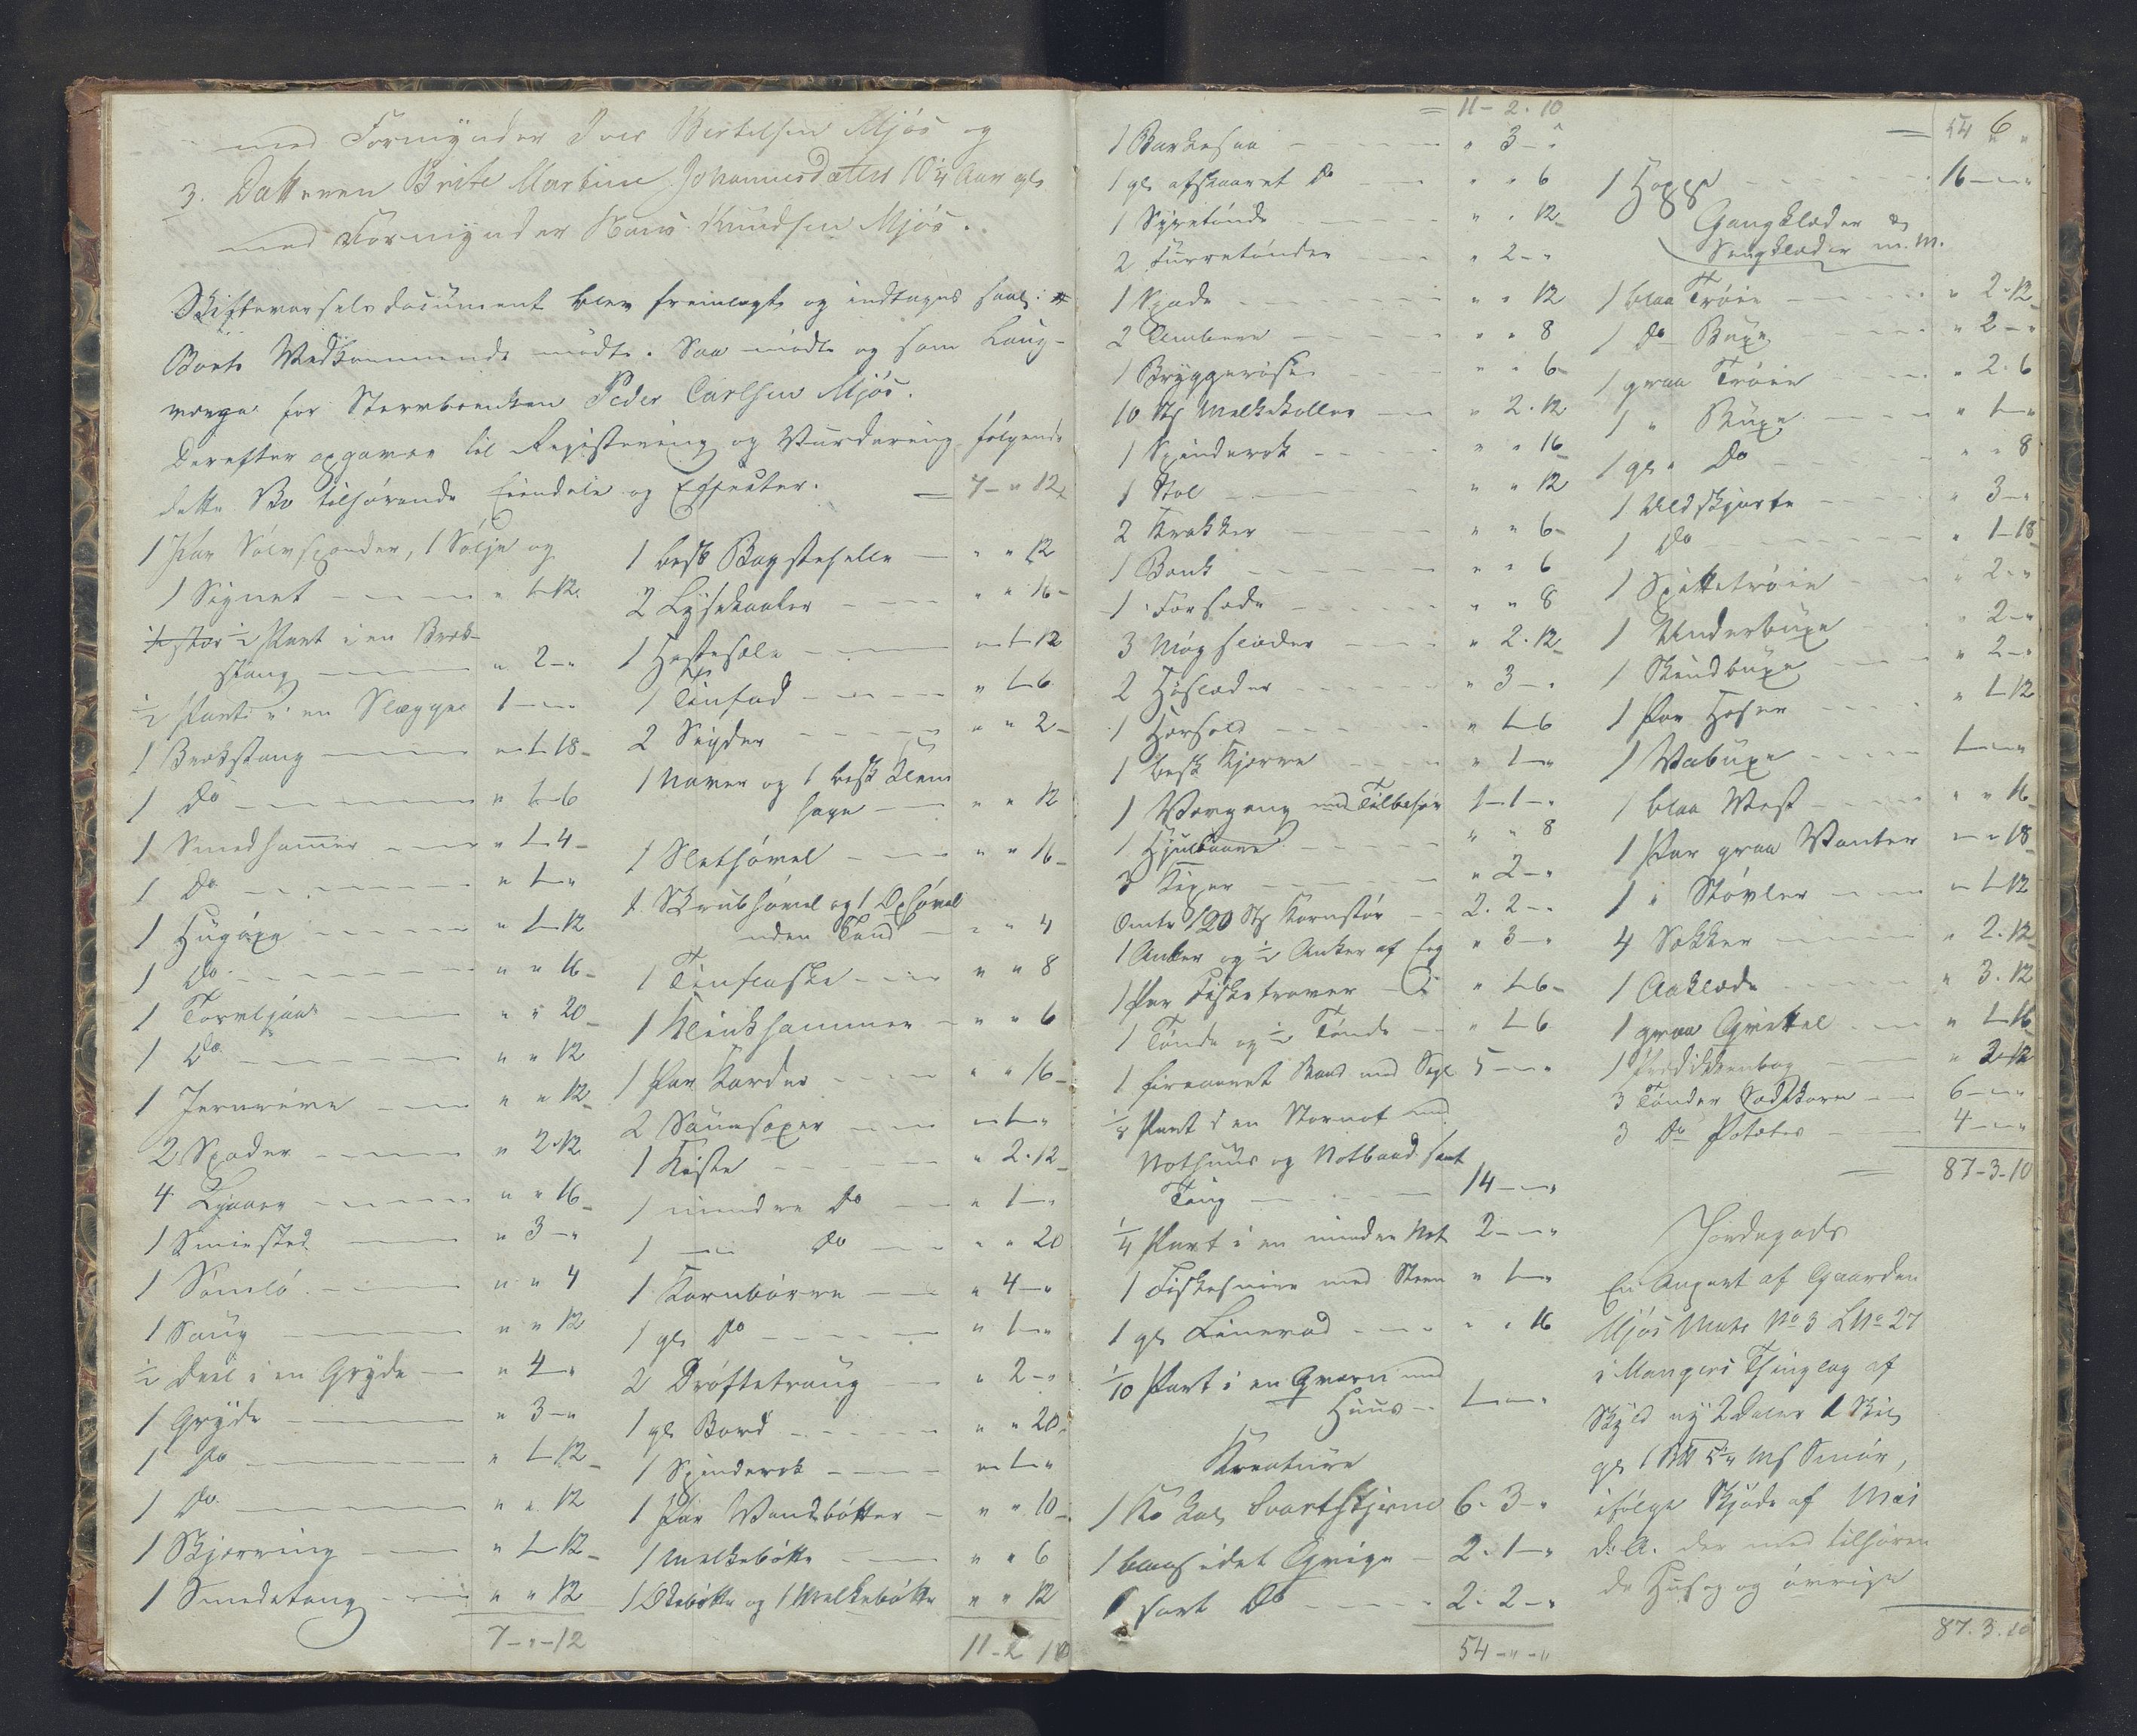 med Formynder Iver Bertelsen Mjøs og
3. Datteren Brite Martine Johannesdatter 10 1/4 Aar gl
med Formynder Hans Knudsen Mjøs.
Skiftevarselsdocument blev fremlagt og indtages saal:
Boets Vedkommende mødte. Saa mødte og som Laug-
verge for Stervboenken Peder Carlsen Mjøs.
Derefter opgaves til Registrering og Vurdering følgende
dette Bo tilhørende Eiendele og Effecter.
1 Par Sølvspender, 1 Sølje og
1 Signet " 1 - 12
1/2 Part i en Bræk-
stang " 2 - "
1/2 Part i en Slægge 1 - " - "
1 Brækstang " 1 - 18
1 Do " 1 - 6
1 Smedhammer " 1 - 4
1 Do " 1 - "
1 Hugøxe " 1 - 12
1 Do " " 16
1 Torvljaa " " 20
1 Do " " 12
1 Jernrive " " 12
2 Spader " 2 - 12
4 Ljaaer " " 16
1 Smiested " 3 - "
1 Sømlo " " 4
1 Saug " " 12
1/2 Deel i en Gryde " 4 - "
1 Gryde " 3 - "
1 Do " 1 - 12
1 Do " " 12
1 Skjærring " 1 - 12
1 Smedetang " " 12
7 - " - 12
7 - " 12
1 besk Bagstehelle " " 12
2 Lysekaaler " " 16
1 Hestesæle " 1 - 12
1 Tinfad " 1 - 6
2 Sigder " " 2
1 Naver og 1 besk Klem
sage " " 12
1 Slethøvel " " 16
1 Skrubhøvel og 1 Do høvel
uden Tand " " 4
1 Tinflaske " " 8
1 Klinkhammer " " 6
1 Par Karder " " 16
2 Sauesaxer " 1 - "
1 Kiste " 2 - 12
1 mindre Do " 1 - "
1 Do " " 20
1 Kornbørre " 4 - "
1 gl Do " 1 - "
2 Drøftetraug " 2 - "
1 gl Bord " " 20
1 Spinderok " 1 - "
1 Par Vandbøtter " " 10
1 Melkebøtte " " 6
1 Ølebøtte og 1 Melkebøtte " " 12
11 - 2 10
= 11 - 2 . 10
1 Barkesaa " 3 - "
1 gl afskaaret Do " " 6
1 Syretønde " " 12
2 Turretønder " 2 - "
1 Spade " " 12
2 Ambere " " 8
1 Bryggerøse " " 6
10 St Melkekoller " 2 . 12
1 Spinderok " " 16
1 Stol " " 12
2 Krakker " " 6
1 Bænk " " 6
1 Forsæde " " 8
3 Møgslæder " 2 . 12
2 Høslæder " 3 - "
1 Hørsold " 1 - 6
1 besk Kjærre " 1 - "
1 Vævgang med Tilbehør 1 - 1 - "
1 Hjulbaare " " 8
3 Kiper " 2 - "
Omtr 120 St Kornstør 2 . 2 - "
1 Anker og 1/2 Anker af Eeg " 3 - "
1 Par Fisketraver " 1 - 6
1 Tønde og 1/2 Tønde " 1 - 6
1 fireaaret Baad med Segl 5 - " - "
1/8 Part i en Stornot med
Nothuus og Notbaad samt
Toug 14 - " - "
1/4 Part i en mindre Not 2 - " - "
1 Fiskesnøre med Steen " 1 - "
1 gl Linerad " " 16
1/10 Part i en Qværn med
Huus 1 - " - "
Kreature
1 Ko kal Svartstjerne 6 . 3 - "
1 baasidet Qvige 2 . 1 - "
1 sort Do 2 . 2 - "
54 - " - "
6
= 54 " "
1 Hoppe 16 - " - "
Gangklæder &
Sengklæder m. M.
1 blaa Trøie " 2 . 12
1 Do Buxe " 2 - "
1 graa Trøie " 2 . 6
1 " Buxe " 1 - "
1 gl " Do " " 8
1 Uldskjorte " 3 - "
1 Do " 1 - 18
1 Spittetrøie " 2 - "
1 Underbuxe " 2 - "
1 Skindbuxe " 2 - "
1 Par Hoser " 1 - 12
1 Vabuxe 1 - " - "
1 blaa Vest " " 16
1 Par graa Vanter " " 18
1 " Støvler " 1 - 12
4 Sækker " 2 . 12
1 Aaklæde " 3 . 12
1 graa Qvittel " 1 - 16
1 Prædikkenbog " 2 - 12
3 Tønder Sædekorn 6 - " - "
3 Do Potetes 4 - " - "
87 - 3 - 10
Jordegods
En Anpart af Gaarden
Mjøs Matr No 3 LNo 27
i Mangers Thinglag af
Skyld ny 2 Daler 1 Skil
gl 1 Mæl 5 1/2 Mk Smør,
ifølge Skjøde af Mai
d. A. der med tilhøren
de Huse og øvrige
87 . 3 . 10